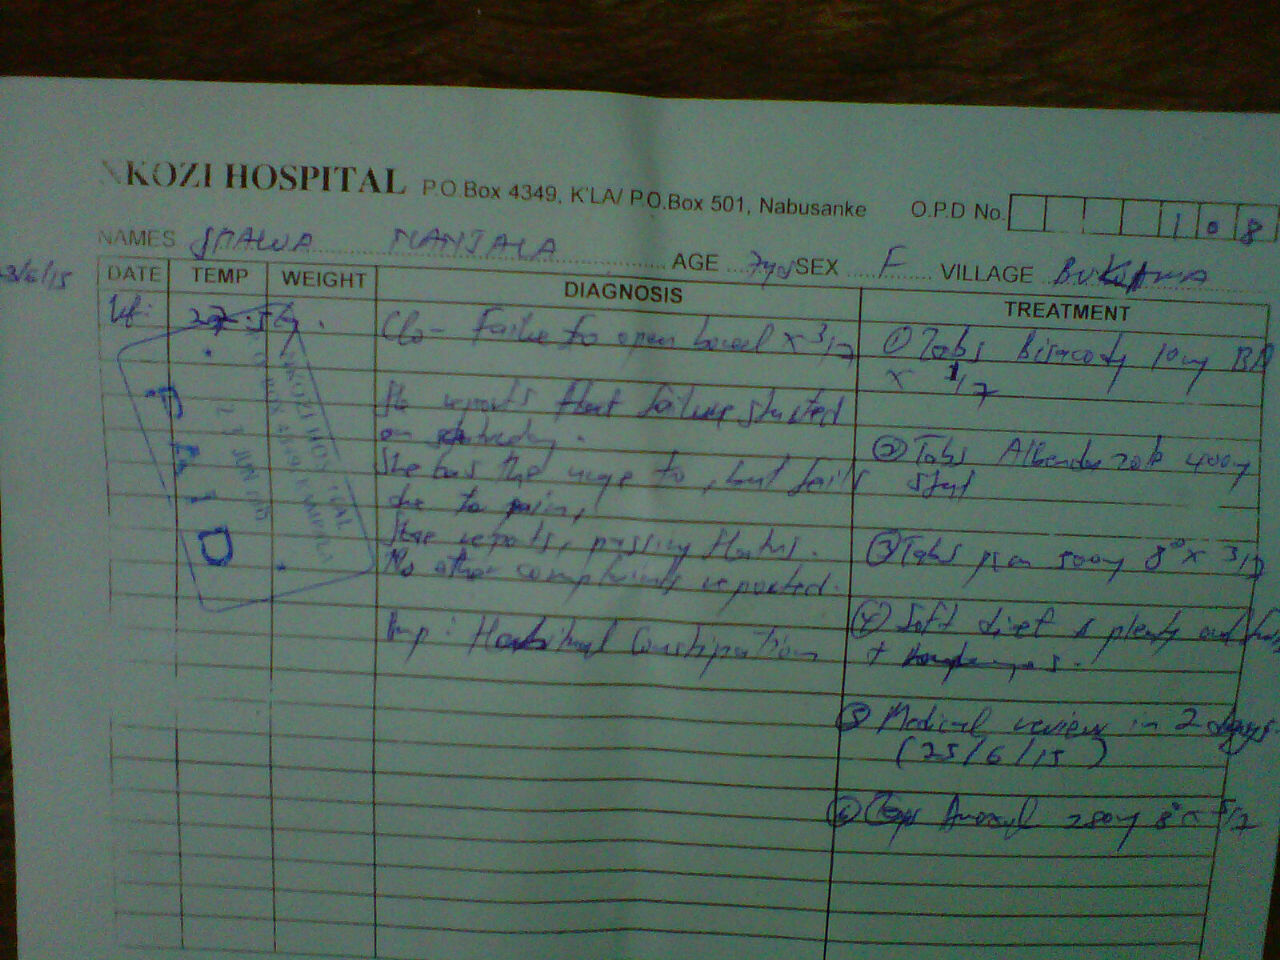 NKOZI HOSPITAL P.O.Box 4349, K'LA/ P.O.Box 501, Nabusanke O.P.D No. 108
NAMES NANJALA AGE 7yrs SEX F VILLAGE BUKOMA
3/6/15
DATE TEMP WEIGHT DIAGNOSIS TREATMENT
C/o - Failure to open bowel x 3/7
She reports that failure started
on
She has the urge to, but fails
due to pain,
She reports, passing flatus.
No other complaints reported.
Imp: Habitual Constipation
① Tabs Bisacody 10mg
x 1/7
② Tabs Albendazole 400mg
stat
③ Tabs pcm 500mg 8° x 3/7
④ Soft diet & plenty
+
⑤ Medical review in 2 days
(25/6/15)
⑥ Caps Amoxyl 250mg 8° x 5/7
NKOZI HOSPITAL
P.O. BOX 4349 KAMPALA
23 JUN 2015
PAID